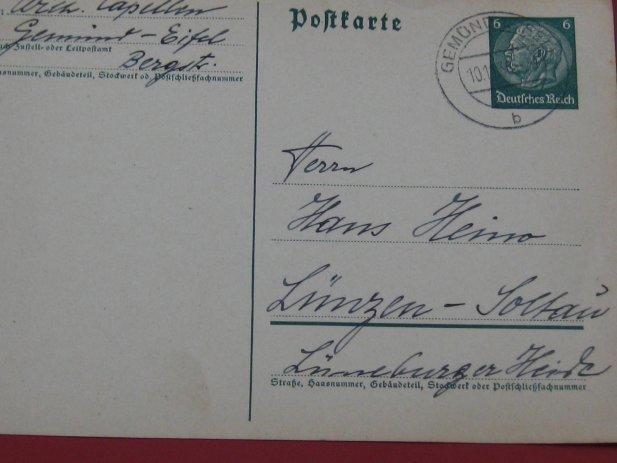 : Arch. Capellen
Gemünd - Eifel
Zustell- oder Leitpostamt
Bergstr.
ausnummer, Gebäudeteil, Stockwerk od. Postschließfachnummer
Postkarte
GEMÜND
10.1
b
6 6
Deutsches Reich
Herrn
Hans Heino
Lünzen - Soltau
Lüneburger Heide
Straße, Hausnummer, Gebäudeteil, Stockwerk oder Postschließfachnummer